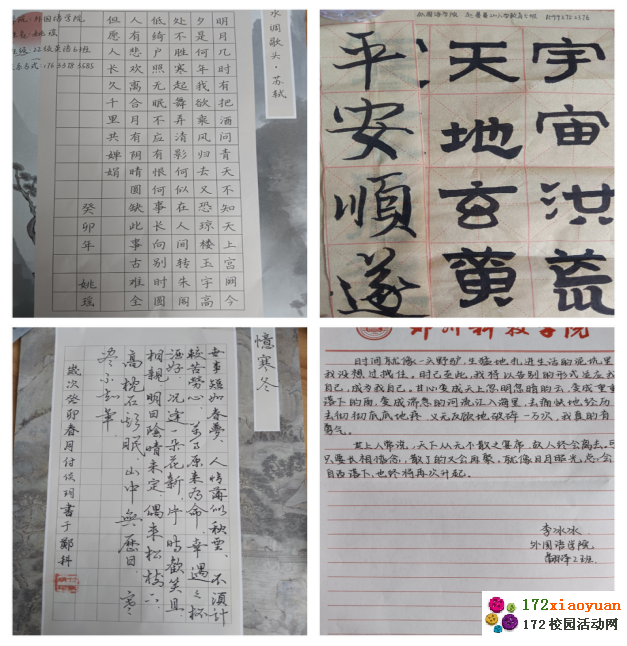 水调歌头·苏轼
外国语学院
姚瑶
22级英语6班
明月几时有把酒问青天不知天上宫阙今
夕是何年我欲乘风归去又恐琼楼玉宇高
处不胜寒起舞弄清影何似在人间转朱阁
低绮户照无眠不应有恨何事长向别时圆
人有悲欢离合月有阴晴圆缺此事古难全
但愿人长久千里共婵娟
癸卯年 姚瑶
外国语学院
宇宙洪荒
天地玄黄
平安順遂
憶寒冬
世事短如春夢，人情薄似秋雲。不須計
較苦勞心，万事原来有命。幸遇三杯
酒好，况逢一朵花新。片時歡笑且
相親，明日陰晴未定。偶来松樹下，
高枕石頭眠。山中無歷日，寒
盡不知年。
歲次癸卯春月付 書于鄭科
郑州科技学院
时间就像一头野驴，生猛地扎进生活的泥坑里
我没想过拽住。时已至此，我将以告别的形式
自己，成为我自己。其心变成天上忽明忽暗的云，变成重重
落下的雨，变成湍急的河流汇入海里，去痛快地经历
去彻彻底底地再 义无反顾地破碎一万次，我真的有
勇气。
世上人常说，天下从无不散之宴席，故人终会离去。
只要长相忆念，散了的又会再聚。就像日月星光，总会
自西落下，也终将再次升起。
李冰冰
外国语学院
翻译2班
172xiaoyuan
172校园活动网